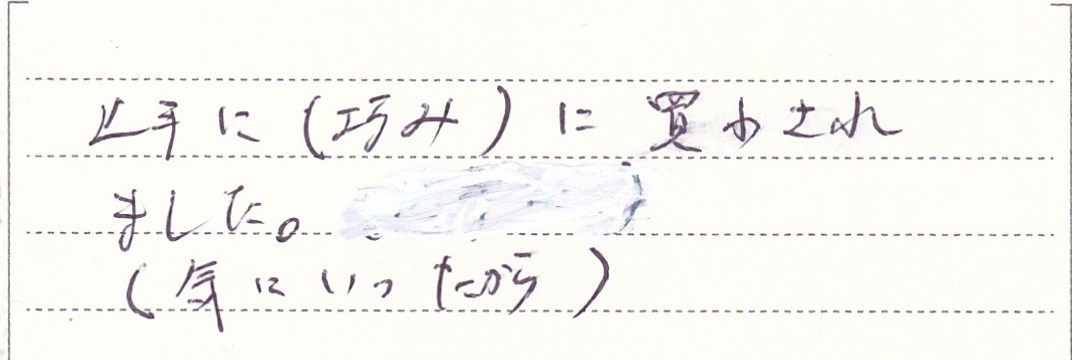 上手に(巧み)に買わされ
ました。
(気にいったから)